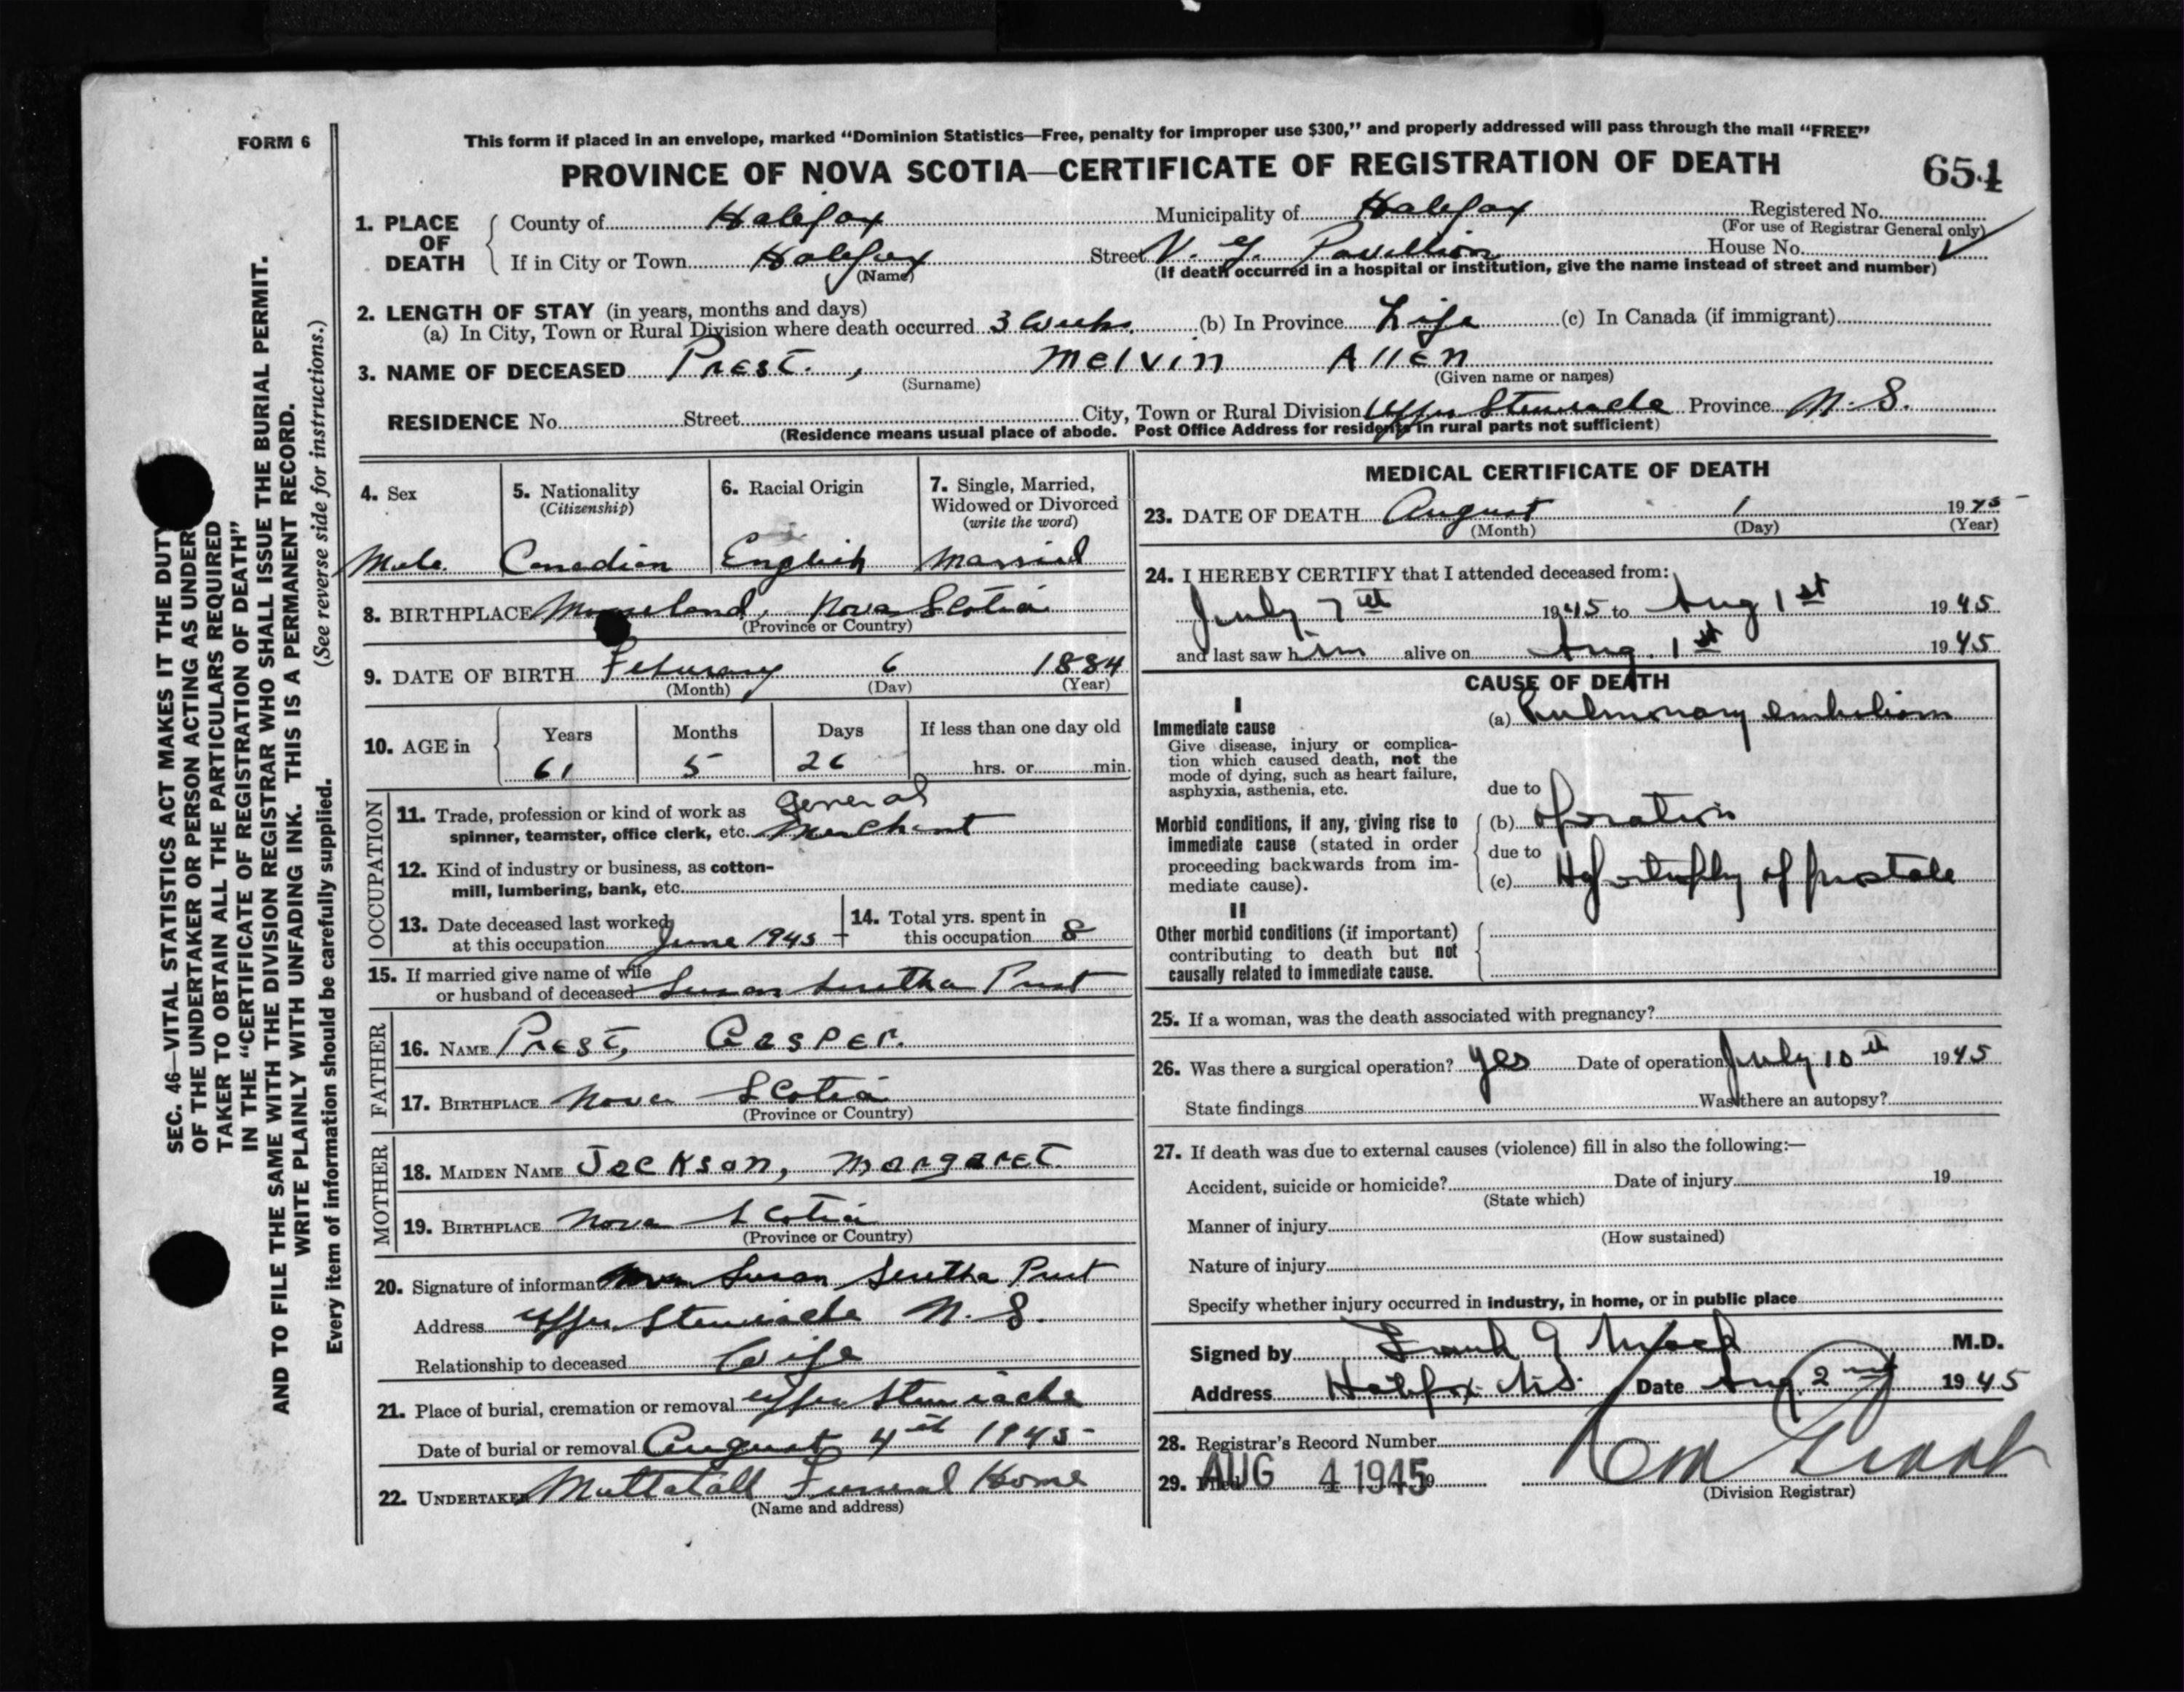 FORM 6
This form if placed in an envelope, marked “Dominion Statistics—Free, penalty for improper use $300,” and properly addressed will pass through the mail “FREE”
PROVINCE OF NOVA SCOTIA—CERTIFICATE OF REGISTRATION OF DEATH
654
1. PLACE OF DEATH
County of Halifax Municipality of Halifax Registered No.
(For use of Registrar General only)
If in City or Town Halifax Street V. G. Pavillion House No.
(Name) (If death occurred in a hospital or institution, give the name instead of street and number)
2. LENGTH OF STAY (in years, months and days)
(a) In City, Town or Rural Division where death occurred 3 Weeks (b) In Province Life (c) In Canada (if immigrant)
3. NAME OF DECEASED Prest, Melvin Allen
(Surname) (Given name or names)
RESIDENCE No. Street City, Town or Rural Division Upper Stewiacke Province N. S.
(Residence means usual place of abode. Post Office Address for residents in rural parts not sufficient)
SEC. 46—VITAL STATISTICS ACT MAKES IT THE DUTY
OF THE UNDERTAKER OR PERSON ACTING AS UNDER
TAKER TO OBTAIN ALL THE PARTICULARS REQUIRED
IN THE “CERTIFICATE OF REGISTRATION OF DEATH”
AND TO FILE THE SAME WITH THE DIVISION REGISTRAR WHO SHALL ISSUE THE BURIAL PERMIT.
WRITE PLAINLY WITH UNFADING INK. THIS IS A PERMANENT RECORD.
Every item of information should be carefully supplied. (See reverse side for instructions.)
4. Sex
Male
5. Nationality
(Citizenship)
Canadian
6. Racial Origin
English
7. Single, Married,
Widowed or Divorced
(write the word)
Married
8. BIRTHPLACE Mooseland, Nova Scotia
(Province or Country)
9. DATE OF BIRTH February 6 1884
(Month) (Day) (Year)
10. AGE in
Years Months Days If less than one day old
61 5 26 hrs. or min.
OCCUPATION
11. Trade, profession or kind of work as General
spinner, teamster, office clerk, etc. Merchant
12. Kind of industry or business, as cotton-
mill, lumbering, bank, etc.
13. Date deceased last worked
at this occupation June 1945
14. Total yrs. spent in
this occupation 8
15. If married give name of wife
or husband of deceased Susan Seretha Prest
FATHER
16. NAME Prest, Casper.
17. BIRTHPLACE Nova Scotia
(Province or Country)
MOTHER
18. MAIDEN NAME Jackson, Margaret
19. BIRTHPLACE Nova Scotia
(Province or Country)
20. Signature of informant Mrs Susan Seretha Prest
Address Upper Stewiacke N. S.
Relationship to deceased Wife
21. Place of burial, cremation or removal Upper Stewiacke
Date of burial or removal August 4th 1945
22. UNDERTAKER Mattatall Funeral Home
(Name and address)
MEDICAL CERTIFICATE OF DEATH
23. DATE OF DEATH August 1 1945
(Month) (Day) (Year)
24. I HEREBY CERTIFY that I attended deceased from:
July 7th 1945 to Aug 1st 1945
and last saw him alive on Aug. 1st 1945
CAUSE OF DEATH
I
Immediate cause
Give disease, injury or complica-
tion which caused death, not the
mode of dying, such as heart failure,
asphyxia, asthenia, etc.
(a) Pulmonary embolism
due to
Morbid conditions, if any, giving rise to
immediate cause (stated in order
proceeding backwards from im-
mediate cause).
(b) Operation
due to
(c) Hypertrophy of prostate
II
Other morbid conditions (if important)
contributing to death but not
causally related to immediate cause.
25. If a woman, was the death associated with pregnancy?
26. Was there a surgical operation? yes Date of operation July 10th 1945
State findings Was there an autopsy?
27. If death was due to external causes (violence) fill in also the following:—
Accident, suicide or homicide? Date of injury 19
(State which)
Manner of injury
(How sustained)
Nature of injury
Specify whether injury occurred in industry, in home, or in public place
Signed by Frank G Mack M.D.
Address Halifax N.S. Date Aug. 2nd 1945
28. Registrar's Record Number
29. Filed AUG 4 1945 19
(Division Registrar)